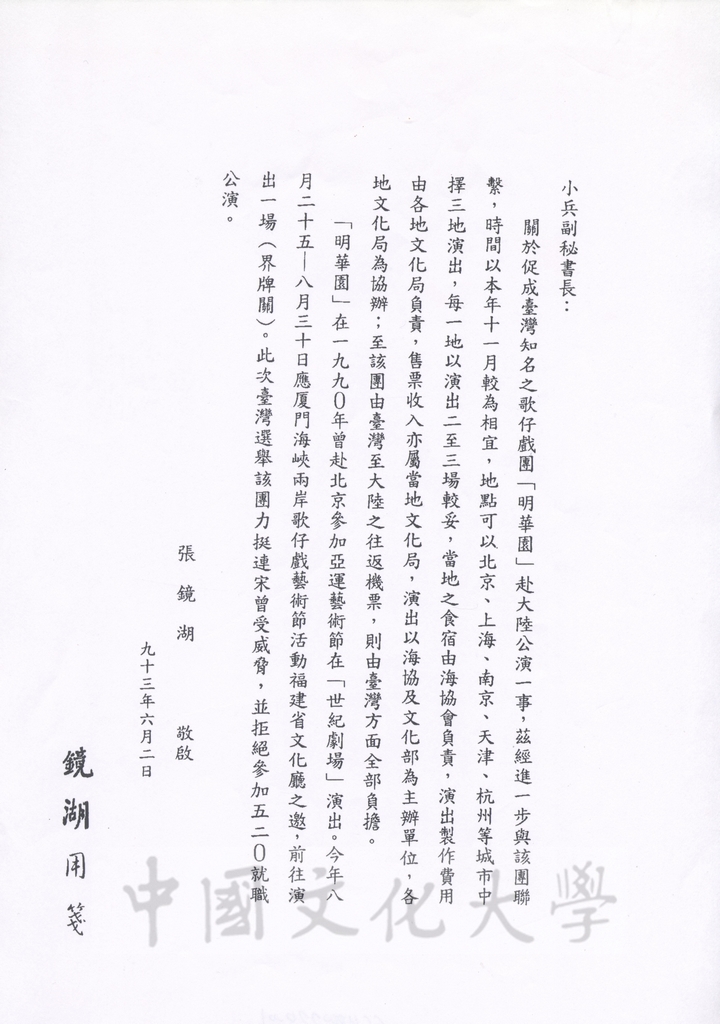 小兵副秘書長：
關於促成臺灣知名之歌仔戲團「明華園」赴大陸公演一事，茲經進一步與該團聯
繫，時間以本年十一月較為相宜，地點可以北京、上海、南京、天津、杭州等城市中
擇三地演出，每一地以演出二至三場較妥，當地之食宿由海協會負責，演出製作費用
由各地文化局負責，售票收入亦屬當地文化局，演出以海協及文化部為主辦單位，各
地文化局為協辦；至該團由臺灣至大陸之往返機票，則由臺灣方面全部負擔。
「明華園」在一九九０年曾赴北京參加亞運藝術節在「世紀劇場」演出。今年八
月二十五－八月三十日應厦門海峽兩岸歌仔戲藝術節活動福建省文化廳之邀，前往演
出一場（界牌關）。此次臺灣選舉該團力挺連宋曾受威脅，並拒絕參加五二０就職
公演。
張鏡湖 敬啟
九十三年六月二日
鏡湖用箋
中國文化大學